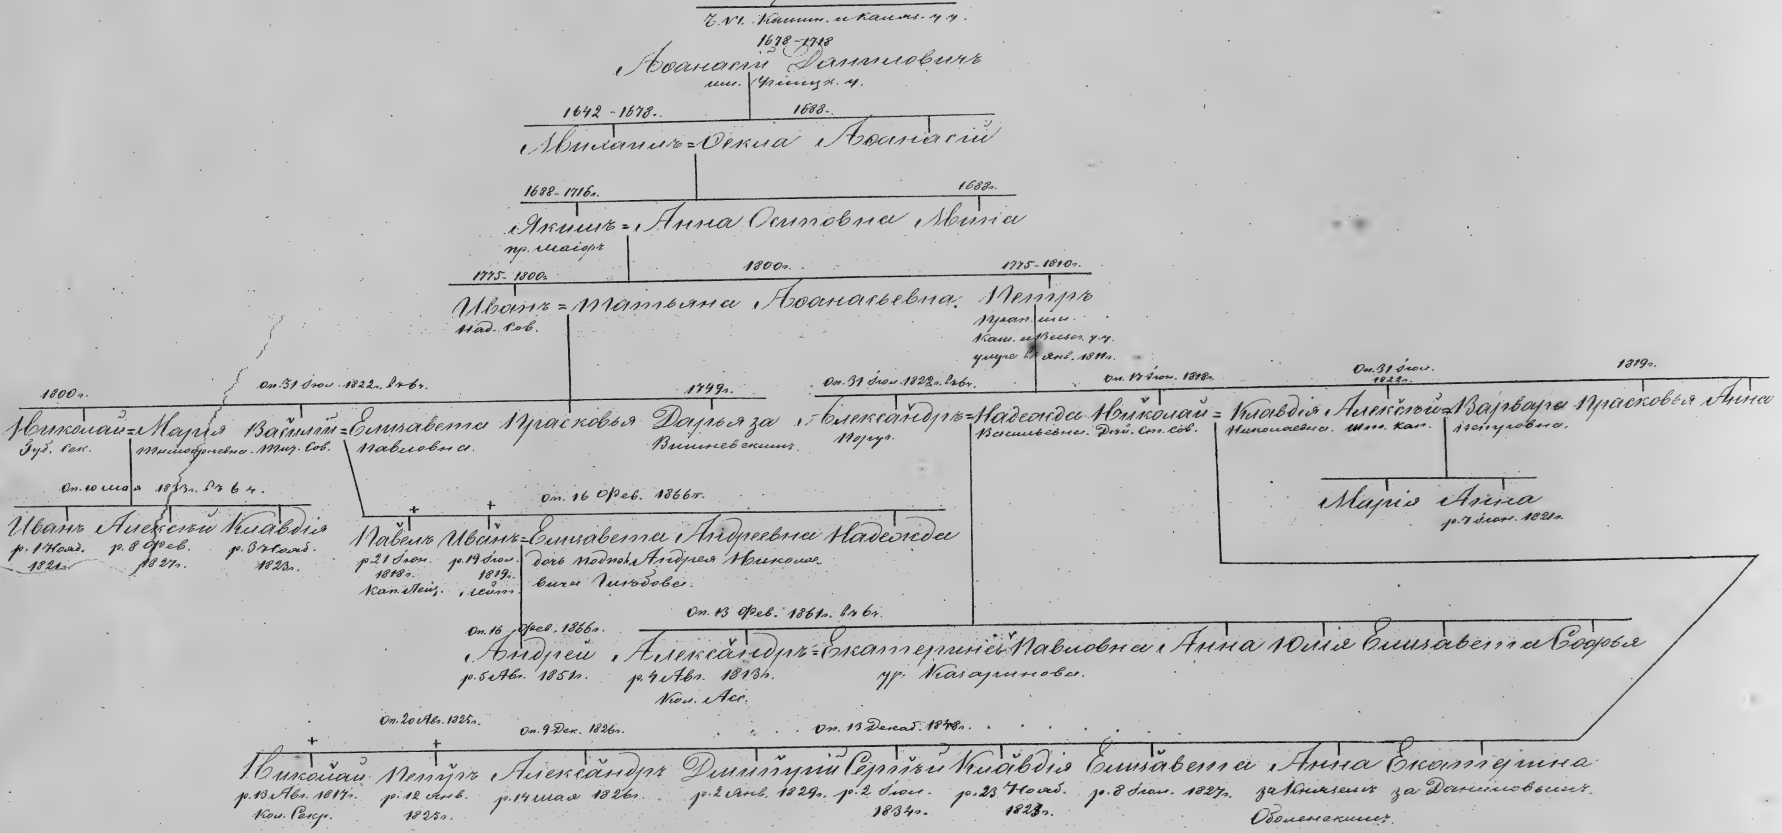 Ч. VI. Кашин. и Каляз. у.у.
1678-1718
Аѳанасій Даниловичъ
1642-1678г. 1688г.
Михаилъ = Ѳекла Аѳанасій
1688-1716г. 1688г.
Якимъ = Анна Осиповна Мина
пр. маіоръ
1775-1800г. 1800г. 1775-1810г.
Иванъ = Татьяна Аѳанасьевна. Петръ
Над. Сов.
Каш. и Весьег. у.у.
Янв. 1811г.
1800г. Оп. 31 Іюл. 1822г. въ 6ч. 1749г. Оп. 31 Іюл. 1822г. въ 6ч. Оп. 17 Іюн. 1818г. Оп. 31 Іюл. 1822г. 1819г.
Николай = Марія Василій = Елизавета Прасковья Дарья за Александръ = Надежда Николай = Клавдія Алексѣй = Варвара Прасковья Анна
Губ. Сек. Тит. Сов. Павловна. Вишневскимъ. Поруч. Васильевна. Дѣй. Ст. Сов. Николаевна. Шт. Кап.
Оп. 10 мая 1833г. въ 6 ч. Оп. 16 Фев. 1866г.
Марія Анна
р. 7 Іюн. 1821г.
Иванъ Алексѣй Клавдія
р. 1 Нояб. 1821г. р. 8 Фев. 1827г. р. 3 Нояб. 1823г.
Павелъ Иванъ = Елизавета Андреевна Надежда
р. 21 Іюн. 1818г. р. 19 Іюл. 1819г. дочь Андрея Николаевича Глѣбова.
Кап. Лейт.
Оп. 16 Фев. 1866г. Оп. 13 Фев. 1861г. въ 6ч.
Андрей Александръ = Екатерина Павловна Анна Юлія Елизавета Софья
р. 5 Авг. 1851г. р. 4 Авг. 1813г. ур. Казаринова.
Кол. Асс.
Оп. 20 Авг. 1825г. Оп. 9 Дек. 1826г. Оп. 13 Декаб. 1848г.
Николай Петръ Александръ Дмитрій Сергѣй Клавдія Елизавета Анна Екатерина
р. 13 Авг. 1817г. р. 12 Янв. 1825г. р. 14 мая 1826г. р. 2 Янв. 1829г. р. 2 Іюл. 1834г. р. 23 Нояб. р. 8 Іюл. 1827г. за Княземъ Оболенскимъ. за Даниловымъ.
Кол. Секр.